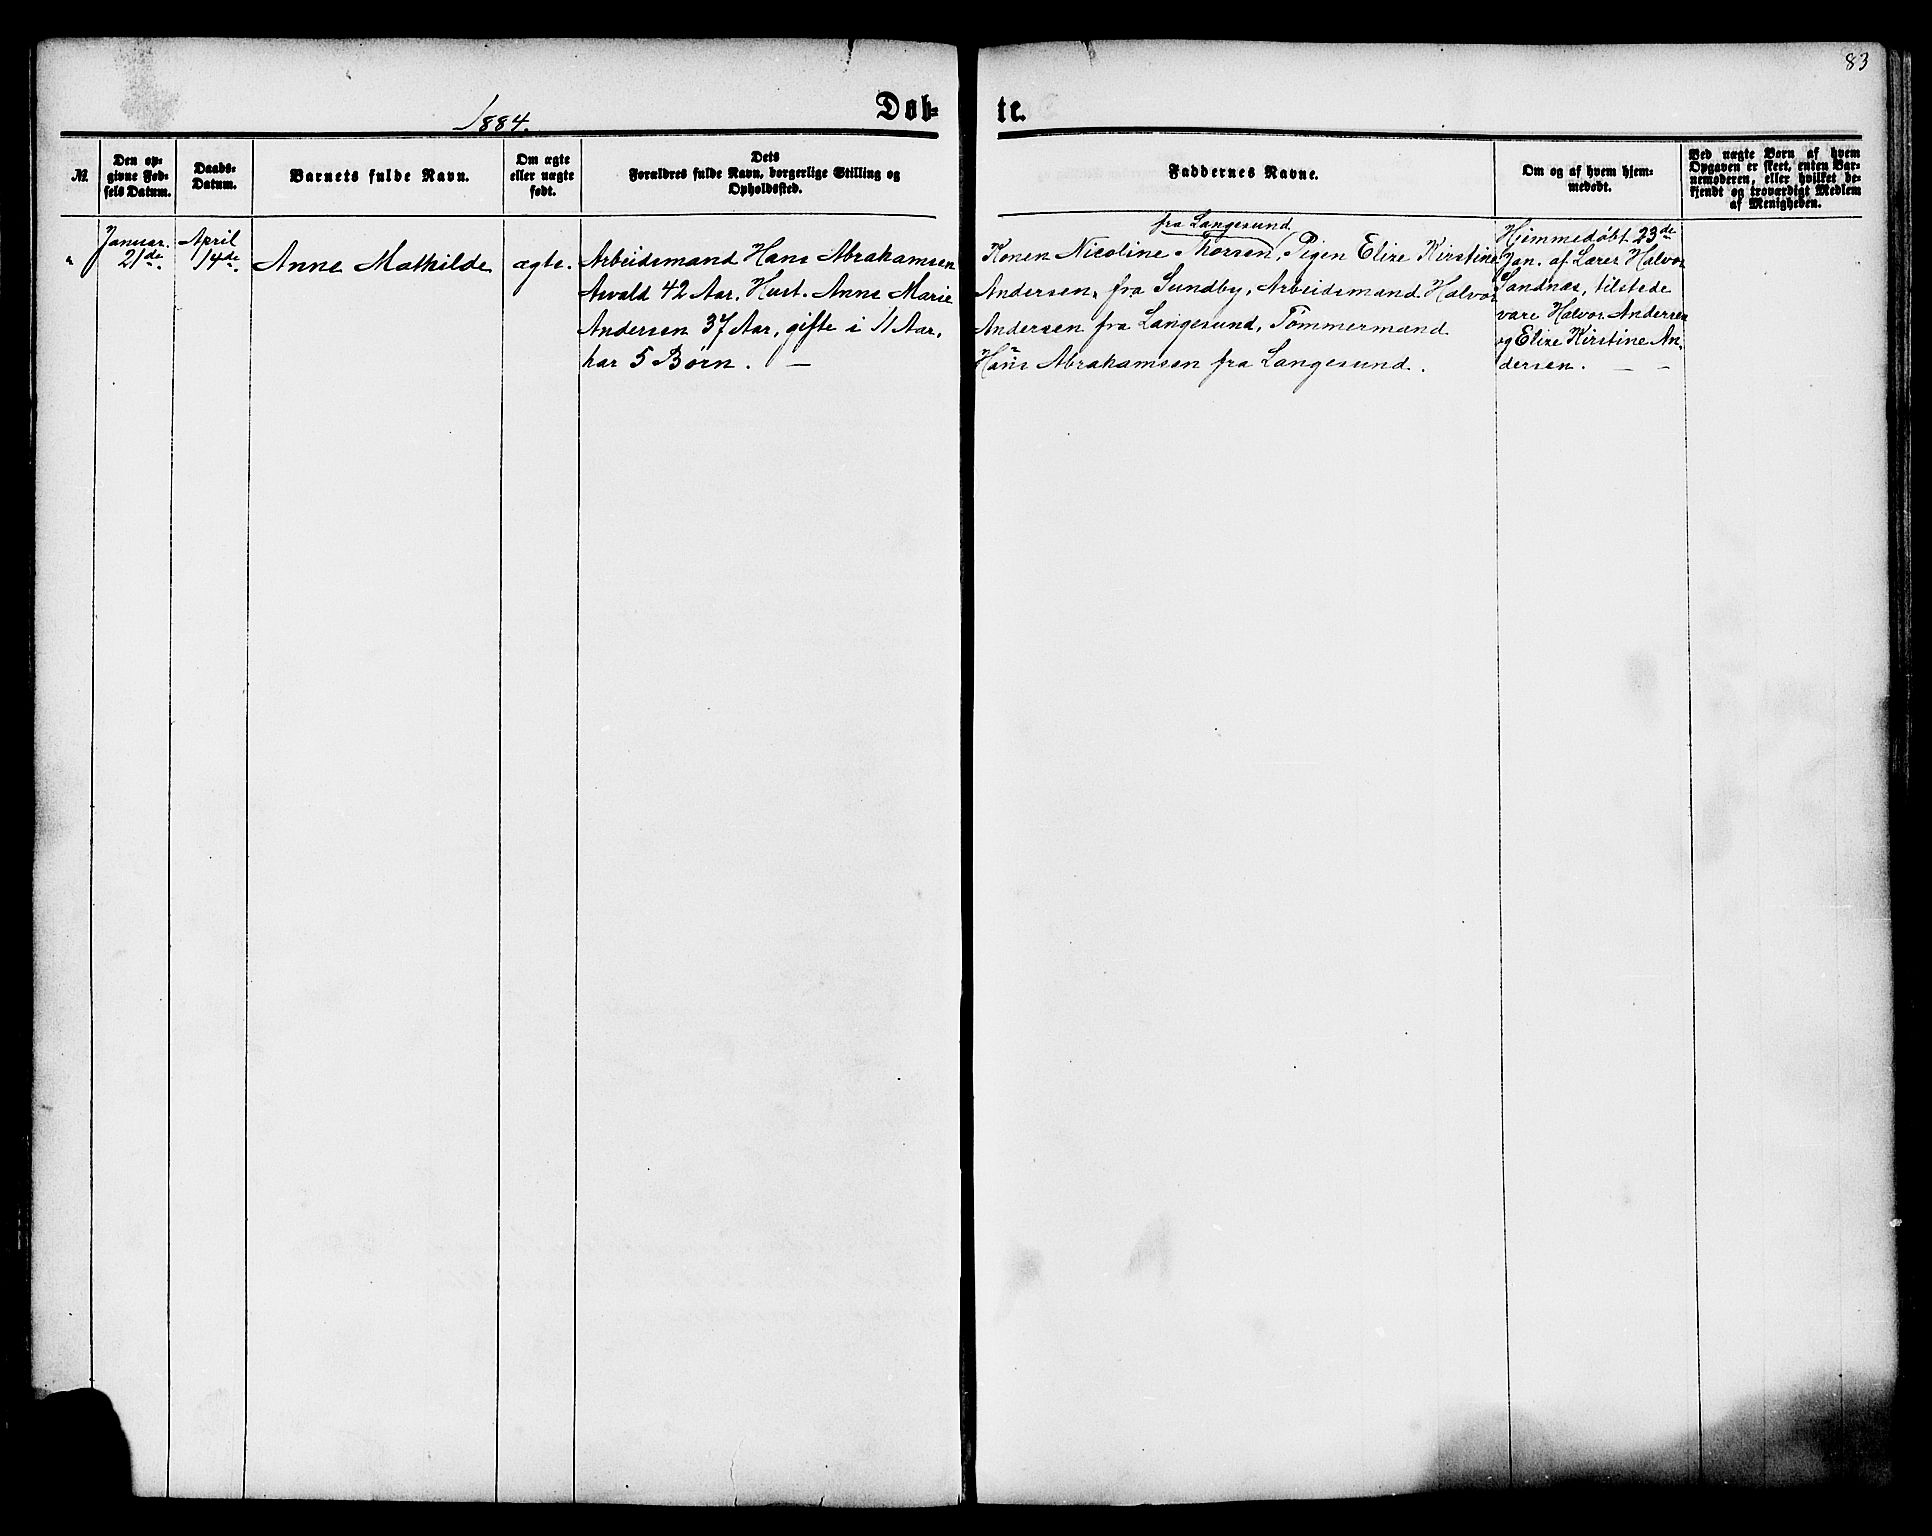 83
1884.
Døb-
te.
№
Den op-
givne Fød-
sels Datum.
Daabs-
Datum.
Barnets fulde Navn.
Om ægte
eller uægte
født.
Dets
Forældres fulde Navn, borgerlige Stilling og
Opholdssted.
Faddernes Navne.
Om og af hvem hjem-
medøbt.
Ved uægte Børn af hvem
Opgaven er skeet, enten Bar-
nemoderen, eller hvilket be-
kjendt og troværdigt Medlem
af Menigheden.
"
Januar.
21de
April
14de
Anne Mathilde
ægte.
Arbeidsmand Hans Abrahamsen
Asvald 42 Aar, Hust. Anne Marie
Andersen 37 Aar, gifte i 11 Aar,
har 5 Børn. —
fra Langesund
Konen Nicoline Thorsen, Pigen Elise Kirstine
Andersen, fra Sundby, Arbeidsmand Halvor
Andersen fra Langesund, Tømmermand
Hans Abrahamsen fra Langesund.
Hjemmedøbt 23de
Jan. af Lærer Halvor
Sandnæs, tilstede
vare Halvor Andersen
og Elise Kirstine An-
dersen. — —